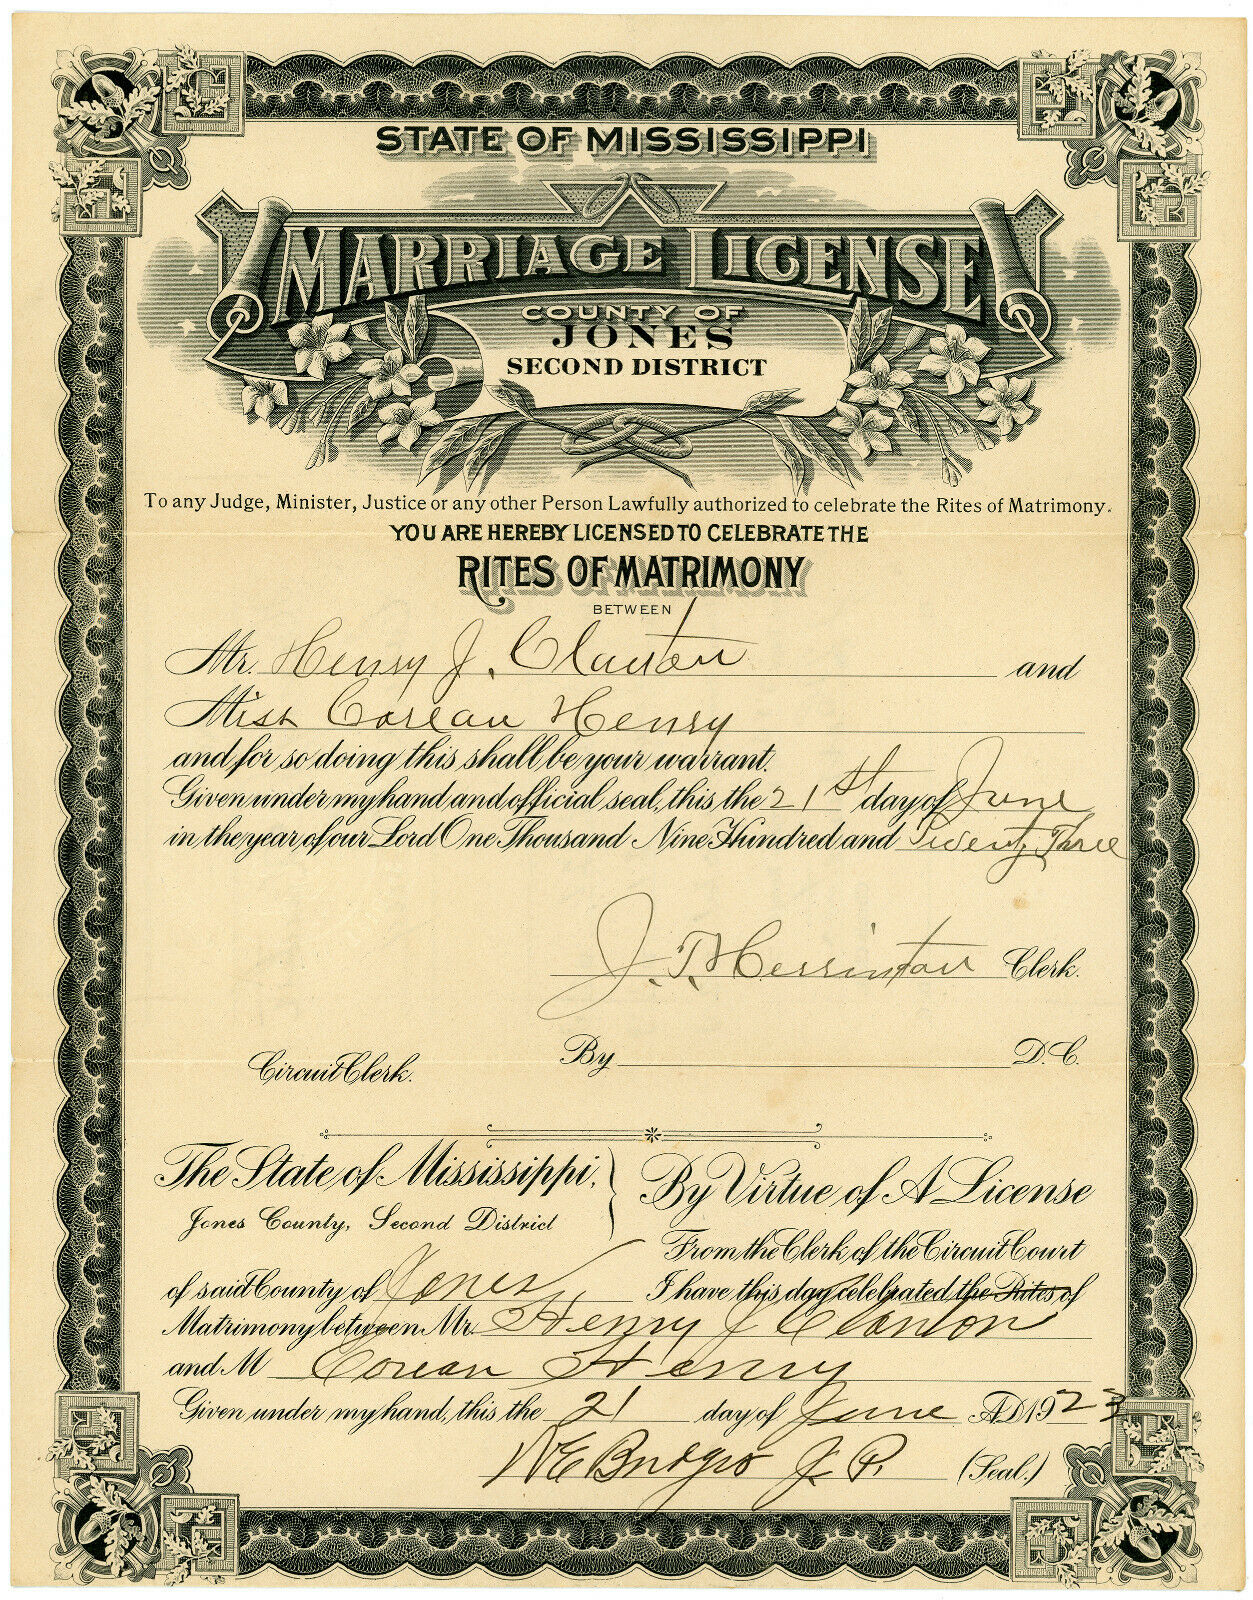 STATE OF MISSISSIPPI
MARRIAGE LICENSE
COUNTY OF
JONES
SECOND DISTRICT
To any Judge, Minister, Justice or any other Person Lawfully authorized to celebrate the Rites of Matrimony.
YOU ARE HEREBY LICENSED TO CELEBRATE THE
RITES OF MATRIMONY
BETWEEN
Mr. Henry J. Clanton and
Miss Corean Henry
and for so doing this shall be your warrant.
Given under my hand and official seal, this the 21st day of June
in the year of our Lord One Thousand Nine Hundred and Twenty Three
J. T. Herrinton Clerk.
Circuit Clerk. By D. C.
The State of Mississippi, } By Virtue of A License
Jones County, Second District
From the Clerk of the Circuit Court
of said County of Jones I have this day celebrated the Rites of
Matrimony between Mr. Henry J Clanton
and M Corean Henry
Given under my hand, this the 21 day of June A.D. 1923
W E J. P. (Seal.)